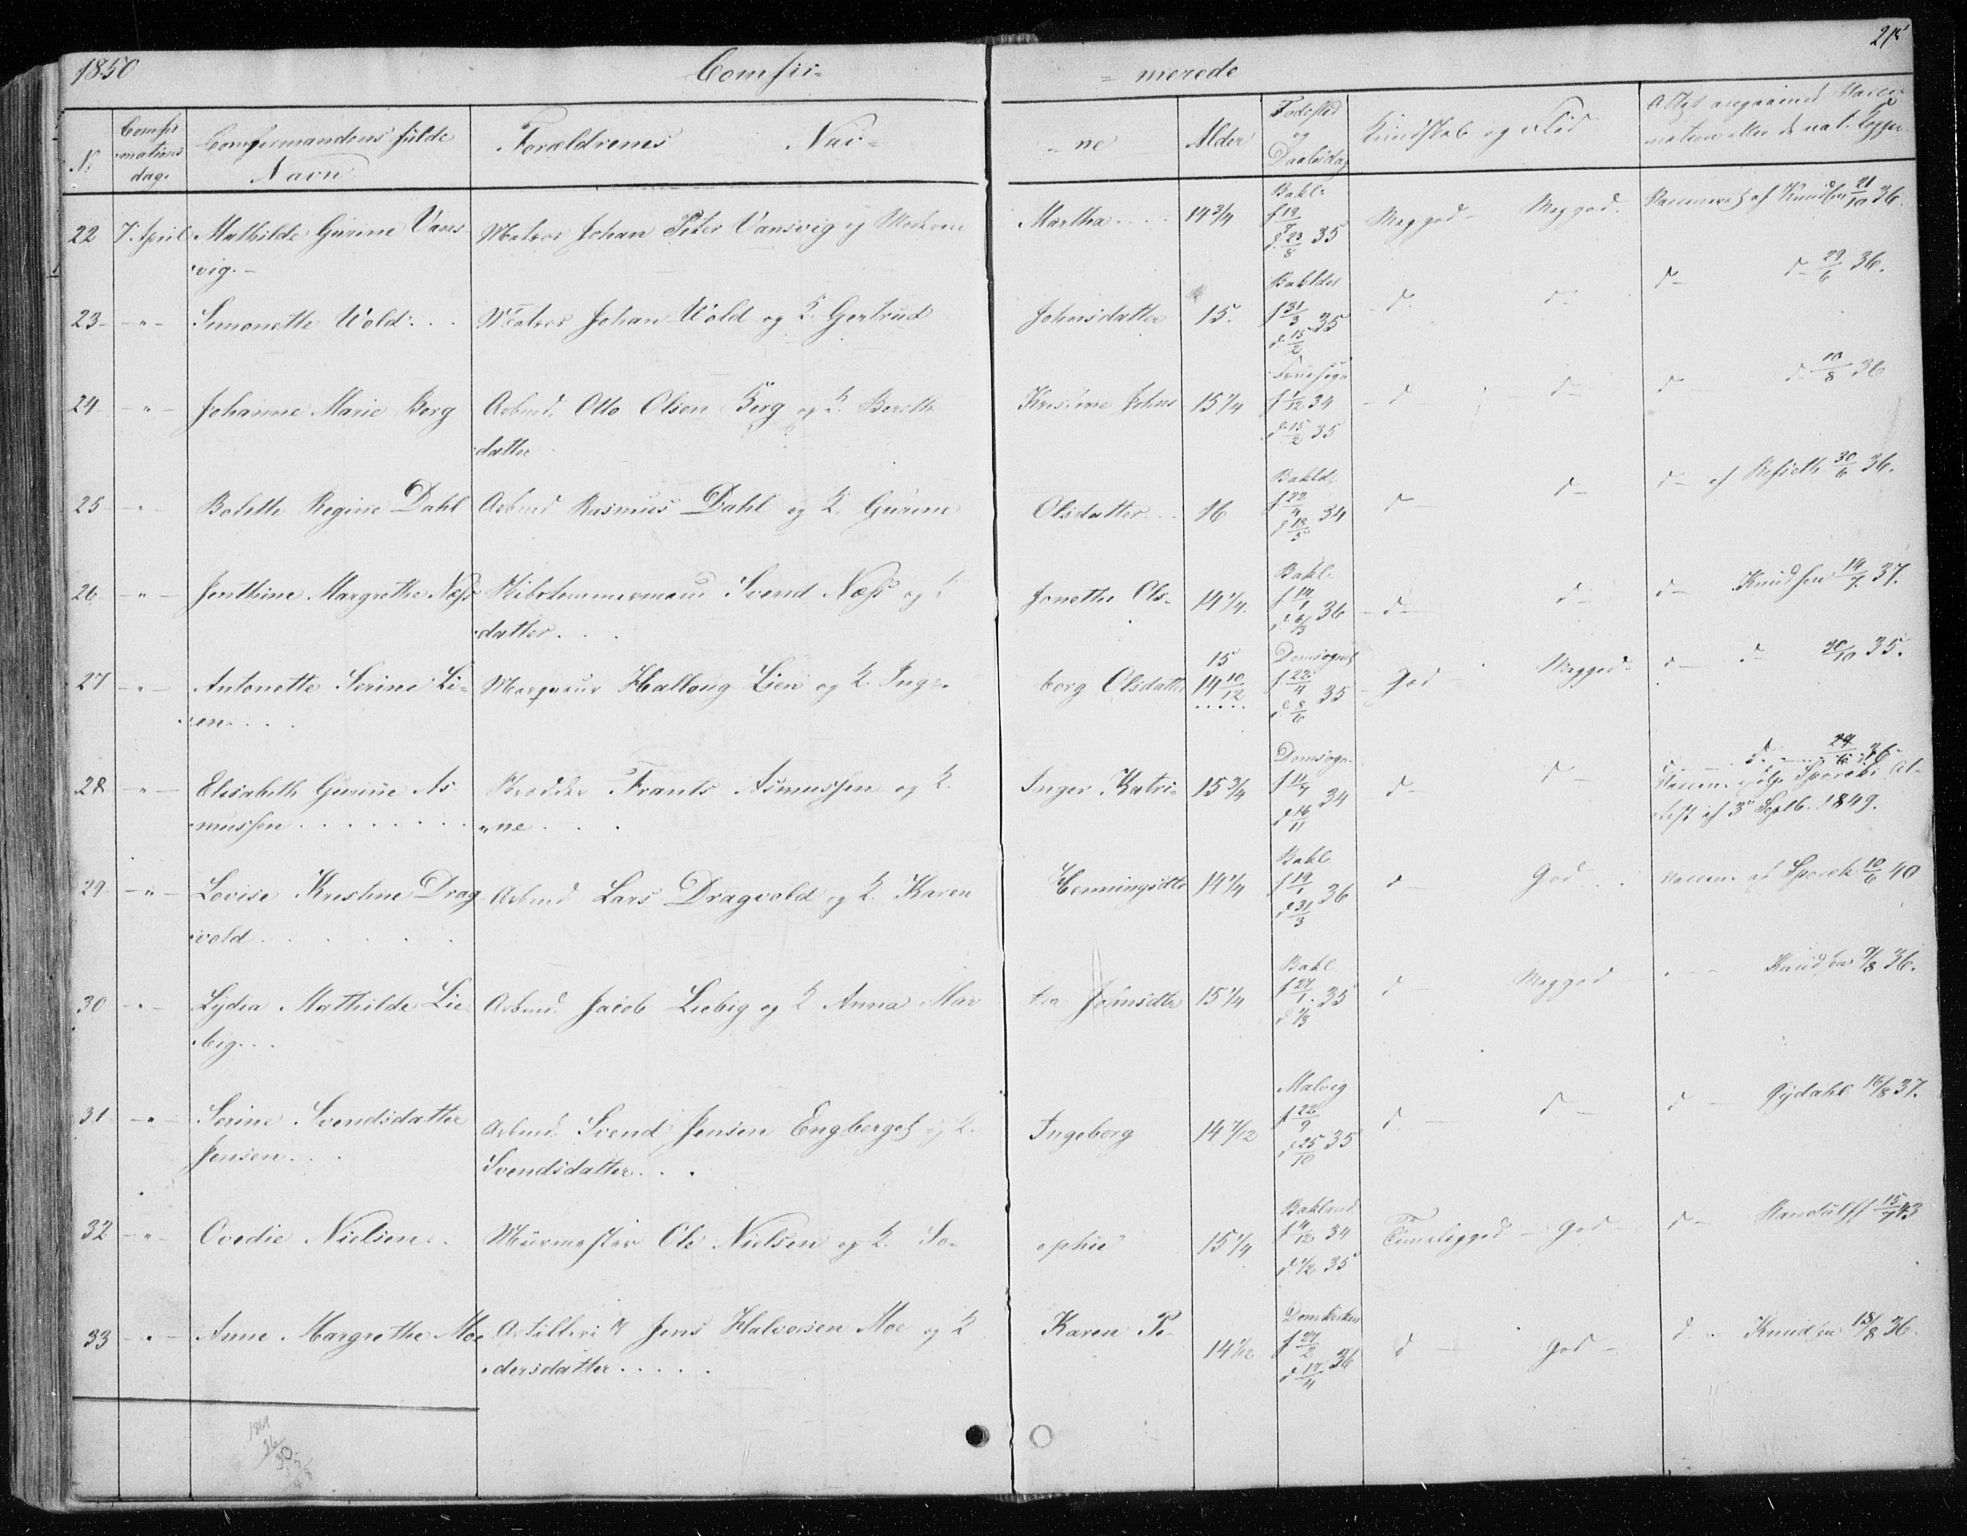 1850 Comfir= =merede 215
N: Comfirmations dag. Comfirmandens fulde Navn Forældrenes Nav= =ne Alder Fødested og Daabsdag Kundskab og Flid Attest angaaende Vaccinationen eller de nat. Kopper
22 7 April Mathilde Gurine Vans- Matros Johan Peter Vansvig og Martha 14 3/4 Bakl. Meg god Meg god. Vaccineret af Knudsen 21/10 36.
vig. f 19/7 d 23/8 35
23 -"- Simonette Wold Matros Johan Wold og K. Gertrud Johnsdatter 15. Baklds d d d d 29/6 36.
f 31/3 d 15/2 35
24 -"- Johanne Marie Berg Arbmd. Otto Olsen Berg og K. Berith Kristine Johns 15 1/4 Fruesogn d d d d 10/8 36
datter f 1/12 34 d 15/2 35
25 -"- Bolette Regine Dahl Arbmd Rasmus Dahl og K. Gurine Olsdatter 16 Bakld. d d d af 30/6 36.
f 22/4 d 18/5 34
26 -"- Jenthine Margrethe Næss Skibstømmermand Svend Næss og K Jonette Ols- 14 1/4. Bakl. d d d Knudsen 14/7 37.
datter. f 14/1 d 6/3 36
27 -"- Antonette Serine Li- Hallong Lien og K. Inge- borg Olsdatter 15 14 10/12 Domsognet God Meg god. d d 30/10 35.
en. f 22/4 d 8/6 35
28 -"- Elisabeth Gurine As Frants Asmussen og K. Inger Katri- 15 3/4 Domsogn. d d d 24/6 36
mussen ne f 11/4 d 16/11 34 Vaccin. ifølge At-
test af 3 Septb. 1849.
29 -"- Lovise Kristine Drag Arbmd Lars Dragvold og K. Karen Henningsdtr 14 1/4 Bakl d God Vaccin. af 10/6 40
vold f 19/1 d 31/3 36
30 -"- Lydia Mathilde Lie- Arbmd. Jacob Liebig og K Anna Mar tha Johnsdtr 15 1/4 Bakl d Meg god Knudsen 9/8 36.
big. f 27/1 35 d 1/3
31 -"- Serine Svendsdatter Arbmd. Svend Jensen Engberget og K. Ingeborg 14 7/12 Malvig d d d Gydahl 16/8 37.
Jensen Svendsdatter f 22/9 d 25/10 35
32 -"- Ovedie Nielsen Murmester Ole Nielsen og K. So- ophie 15 1/4 Bakland Temmelig god God d Randulff 15/7 43
f 4/12 34 d 1/2 35
33 -"- Anne Margrethe Moe Artilleri Jens Halvorsen Moe og K Karen Pe- 14 1/12 Domkirken d God d Knudsen 15/8 36.
dersdatter f 27/2 d 17/4 36